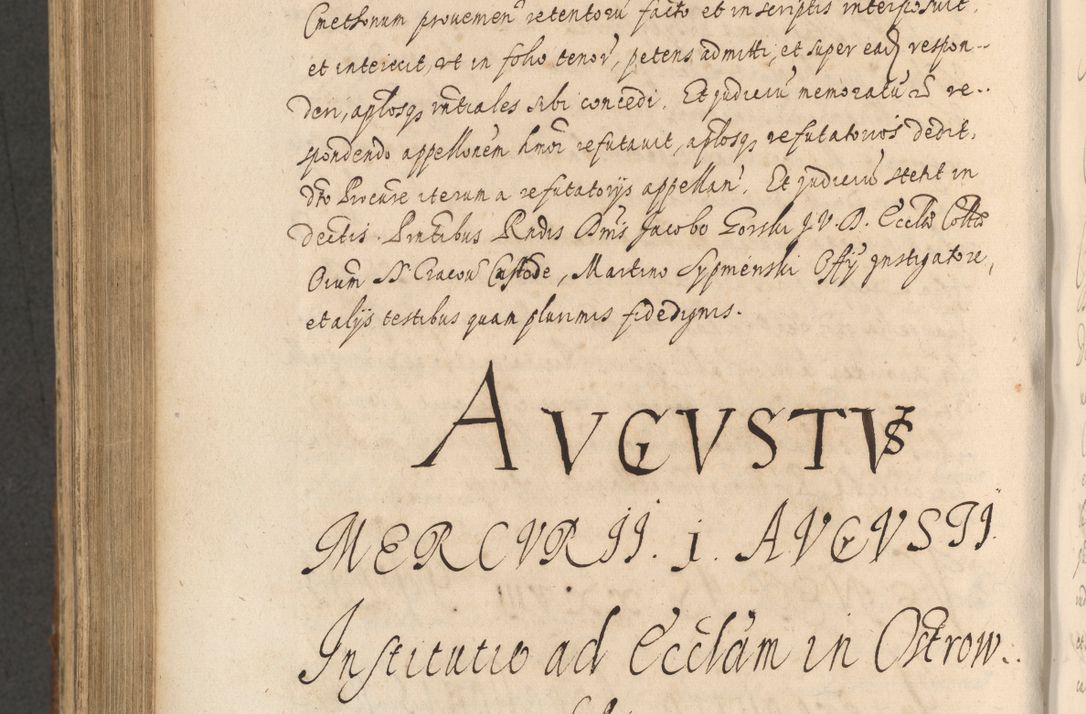 Cmethonum provemen̄ retentorū facto et in scriptis interposuit,
et inteiecit, ut in folio tenor̄, petens admitti, et super eadē respon--
deri, aplosq̨ intiales sibi concedi. Et judiciū memoratū re--
spondendo appellonem hmōi refutavit, aplosq̨ refutatorios dedit,
Dto Procure iterum a refutatorijs appellan̄. Et judiciū stetit in
dectis. Pntibus Rndis Dnis Jacobo Gorski J.V.D. Ecclē Colltē
Oium SS Cracou Custode, Martino Sypmenski Offÿ Instigatore,
et alijs testibus quam plurimis fidedignis.
AVGVSTVS
MERCVRII. 1. AVGVSTI.
Institutio ad Ecclām in Ostrow..